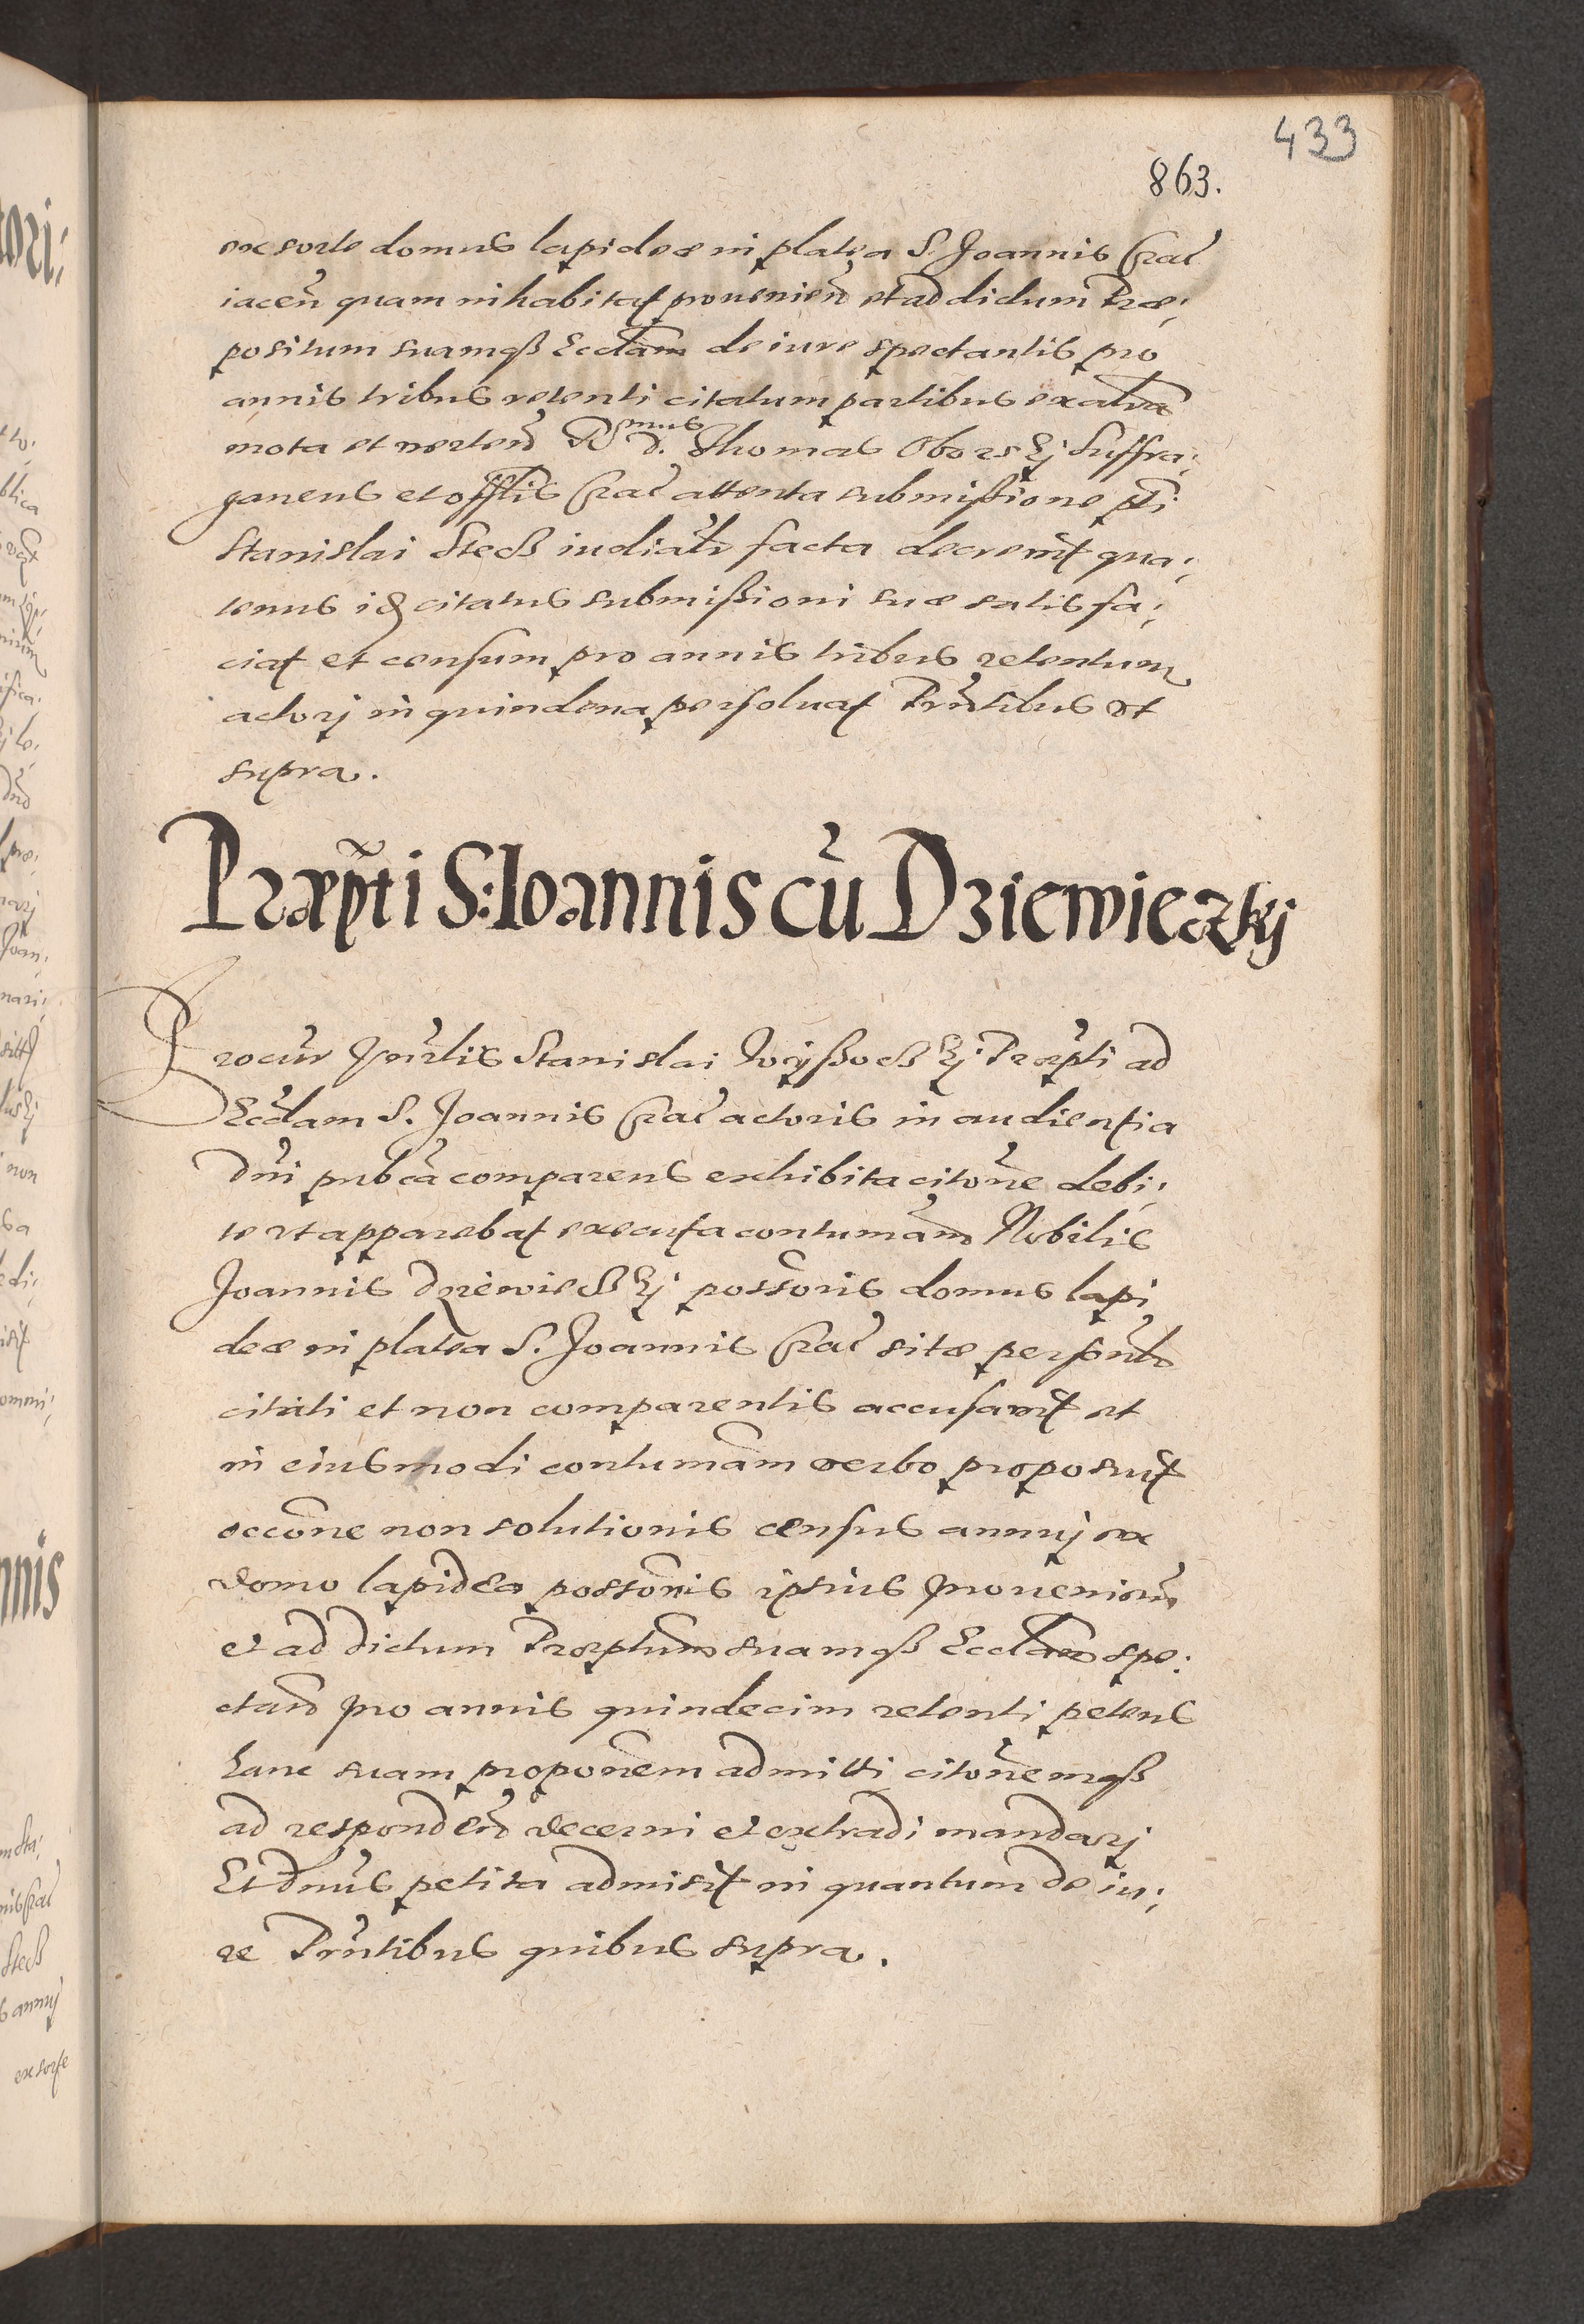 433
863.
ex sorte domus lapideæ in platea S. Joannis Crac̃
iaceñ quam inhabitat prouenieñ et ad dictum Præ;
positum suamqß Eccłam de iure spectantis pro
annis tribus retenti citatum partibus ex altera
mota et verteñ R. D. mus Thomas Oborskj Suffra;
ganeus et offłis Crac̃ attenta submißione pti
Stanislai Stech iudiałr facta decreuit qua;
tenus idẽ citatus submißioni suæ satisfa;
ciat et censum pro annis tribus retentum
actorj in quindena persoluat Prñtibus vt
supra.
Præpti S: Ioannis cũ Dziewieczkj
Procur Gñrlis Stanislai Wyßockj Præpti ad
Eccłam S. Joannis Crac̃ actoris in audientia
Dñi pubca comparens exhibita citoñe debi;
te vt apparebat executa contumam Nobilis
Joannis Dziewieckj possoris domus lapi
deæ in platea S. Joannis Crac̃ sitæ persoñlr
citati et non comparentis accusauit et
in eiusmodi contumam verbo proposuit
occone non solutionis census annuj ex
domo lapidea possonis ipsius prouenieñ
et ad dictum Præptum suamqß Eccłam spe;
ctañ pro annis quindecim retenti petens
hanc suam proponem admitti citonemqß
ad respondeñ decerni et extradi mandarj
Et Dñus petita admisit in quantum de iu;
re Prñtibus quibus supra.